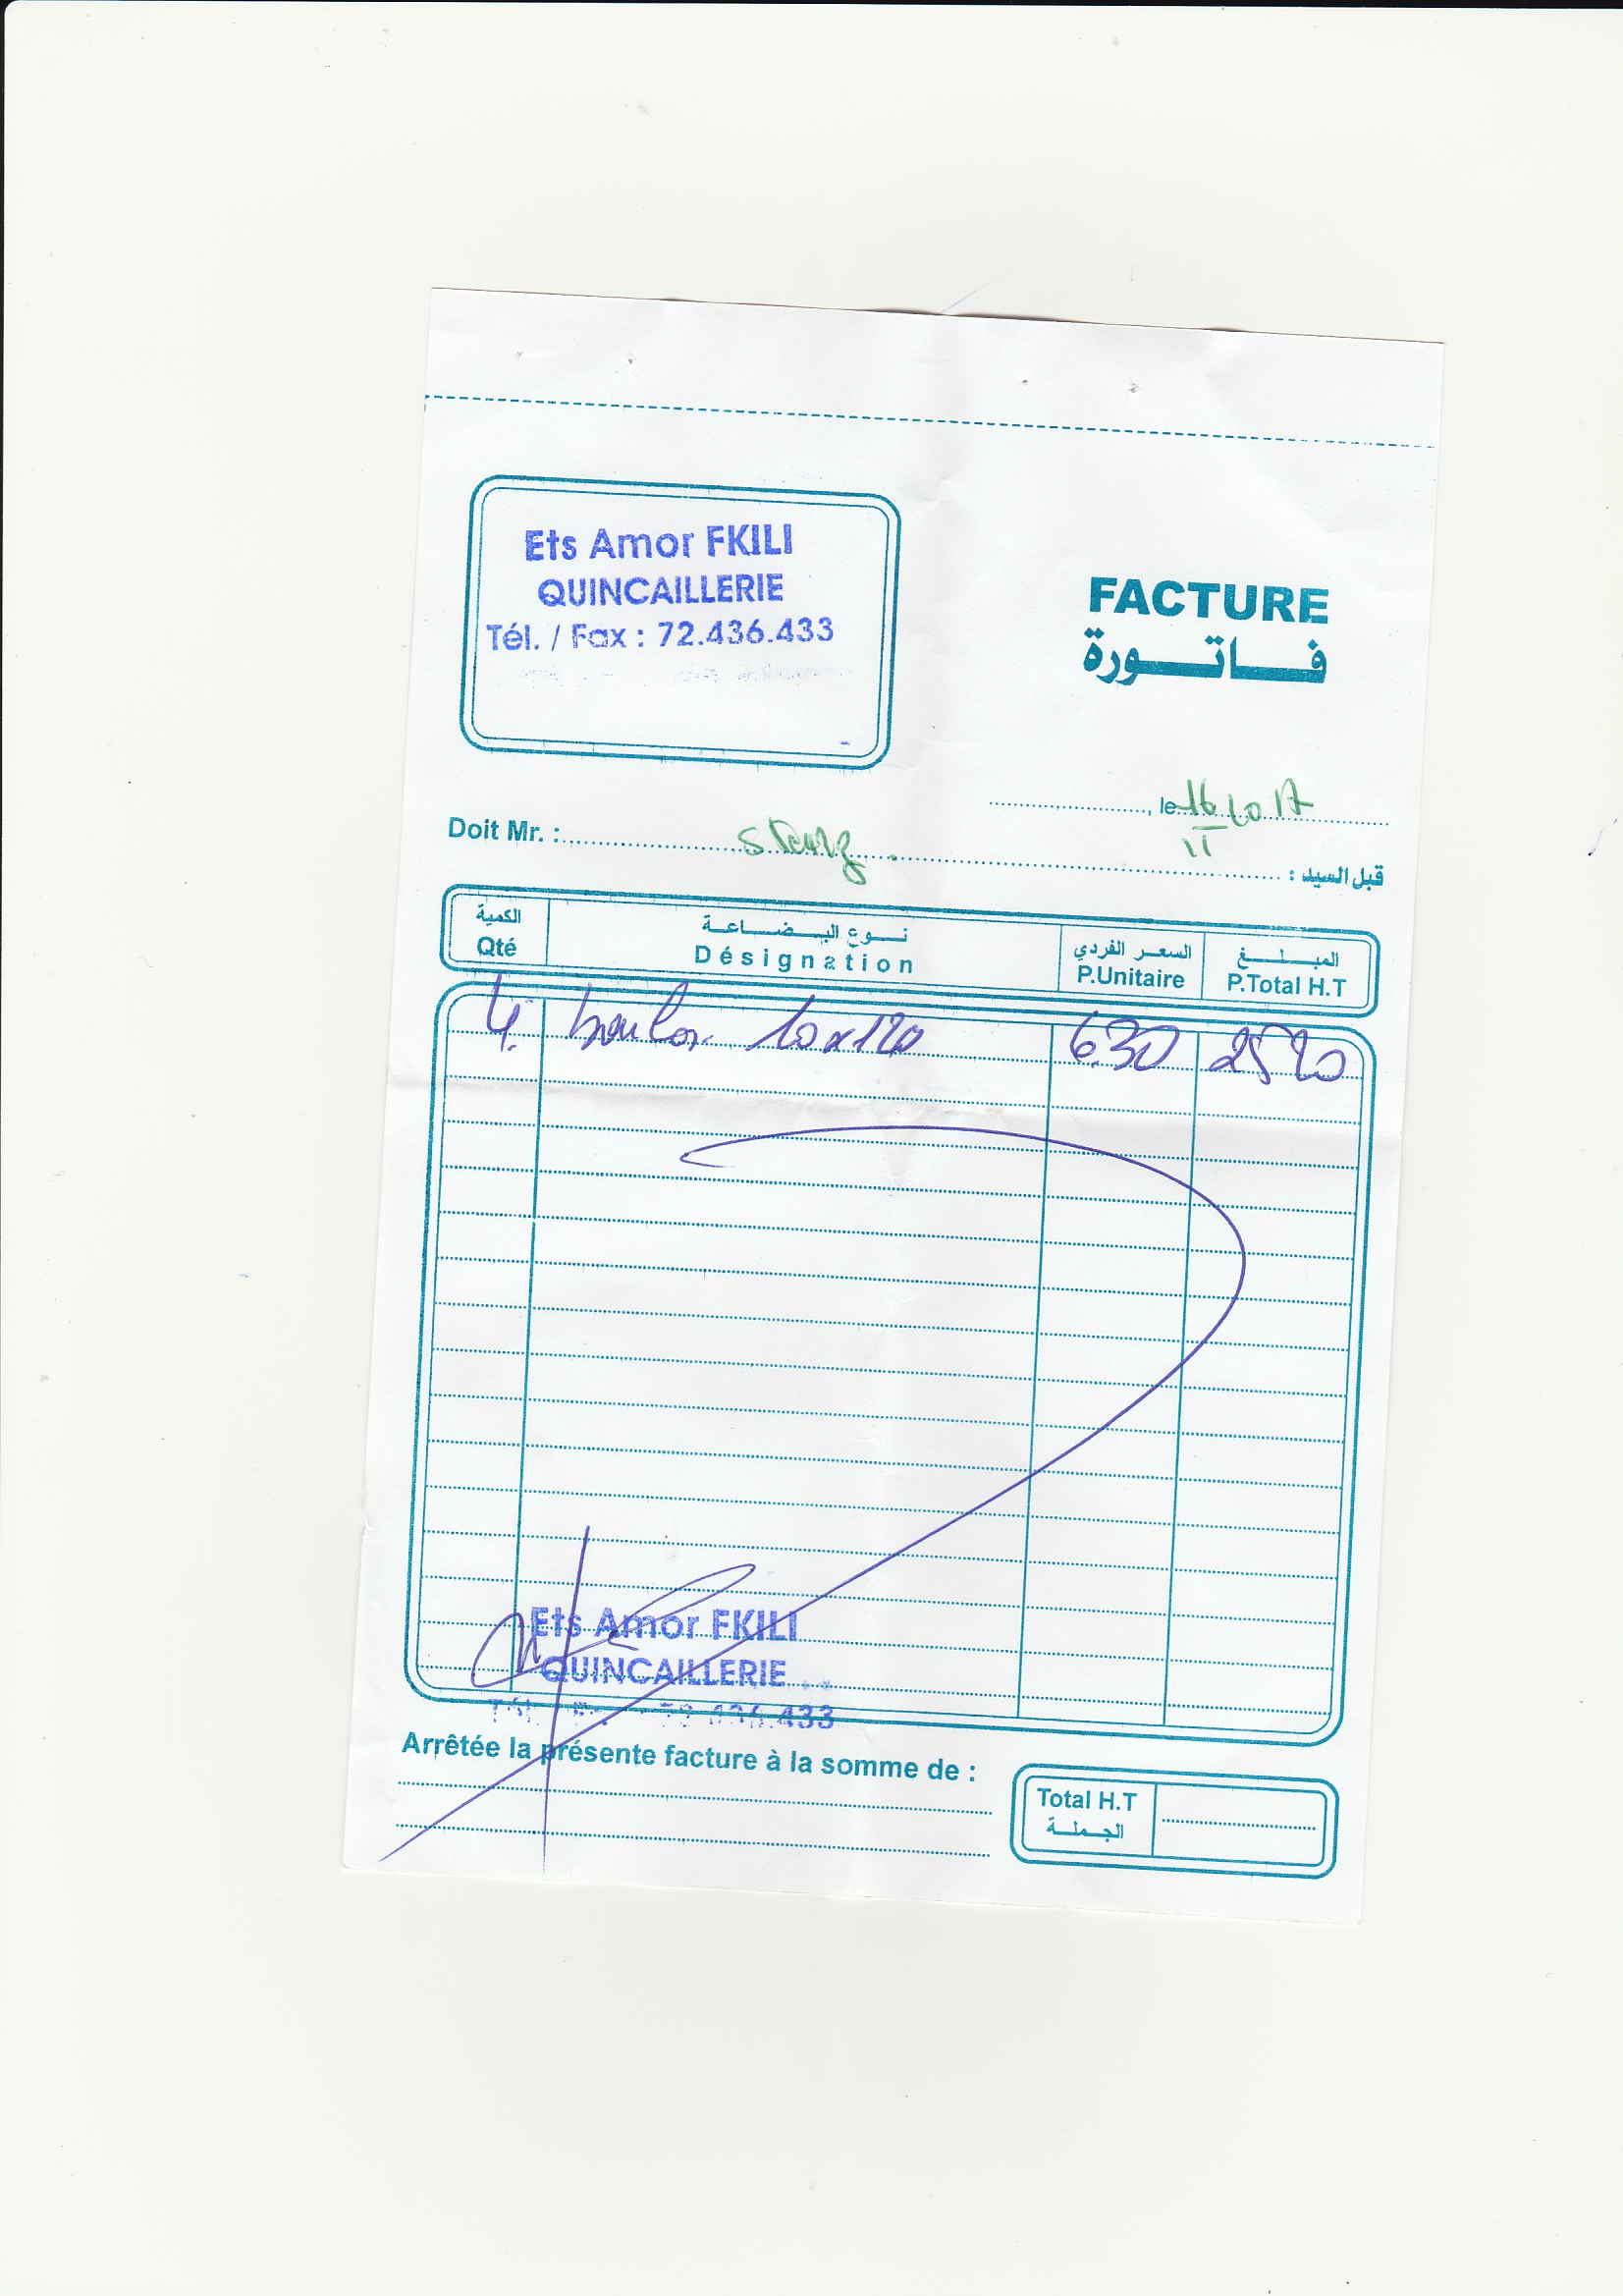 Ets Amor FKILI
QUINCAILLERIE
Tél. / Fax : 72.436.433
FACTURE
فاتورة
, le 16 2017
11
Doit Mr. :
قبل السيد :
الكمية نوع البضاعة السعر الفردي المبلغ
Qté Désignation P.Unitaire P.Total H.T
4 boulon 10x120 630 2520
Ets Amor FKILI
QUINCAILLERIE
Tél. / Fax : 72.436.433
Arrêtée la présente facture à la somme de :
Total H.T
الجملة